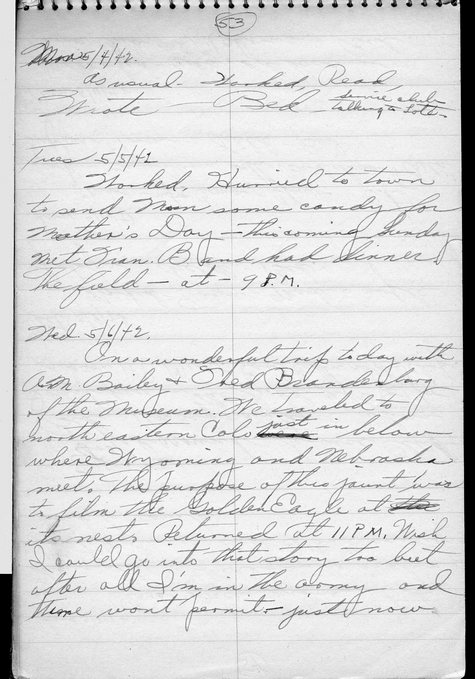 53
Mon 5/4/42.
As usual - Worked, Read,
Wrote - Bed service club
talking to Lott -
Tues 5/5/42
Worked. Hurried to town
to send Mom some candy for
Mother's Day - this coming Sunday
Met Fran. B and had dinner.
The field - at - 9 P.M.
Wed. 5/6/42.
On a wonderful trip today with
A.M. Bailey + Fred Brandenburg
of the Museum. We traveled to
north eastern Colo just in below
where Wyoming and Nebraska
meet. The purpose of this jaunt was
to film the Golden Eagle at the
its nest. Returned at 11 P.M. Wish
I could go into that story too but
after all I'm in the army and
time won't permit - just now